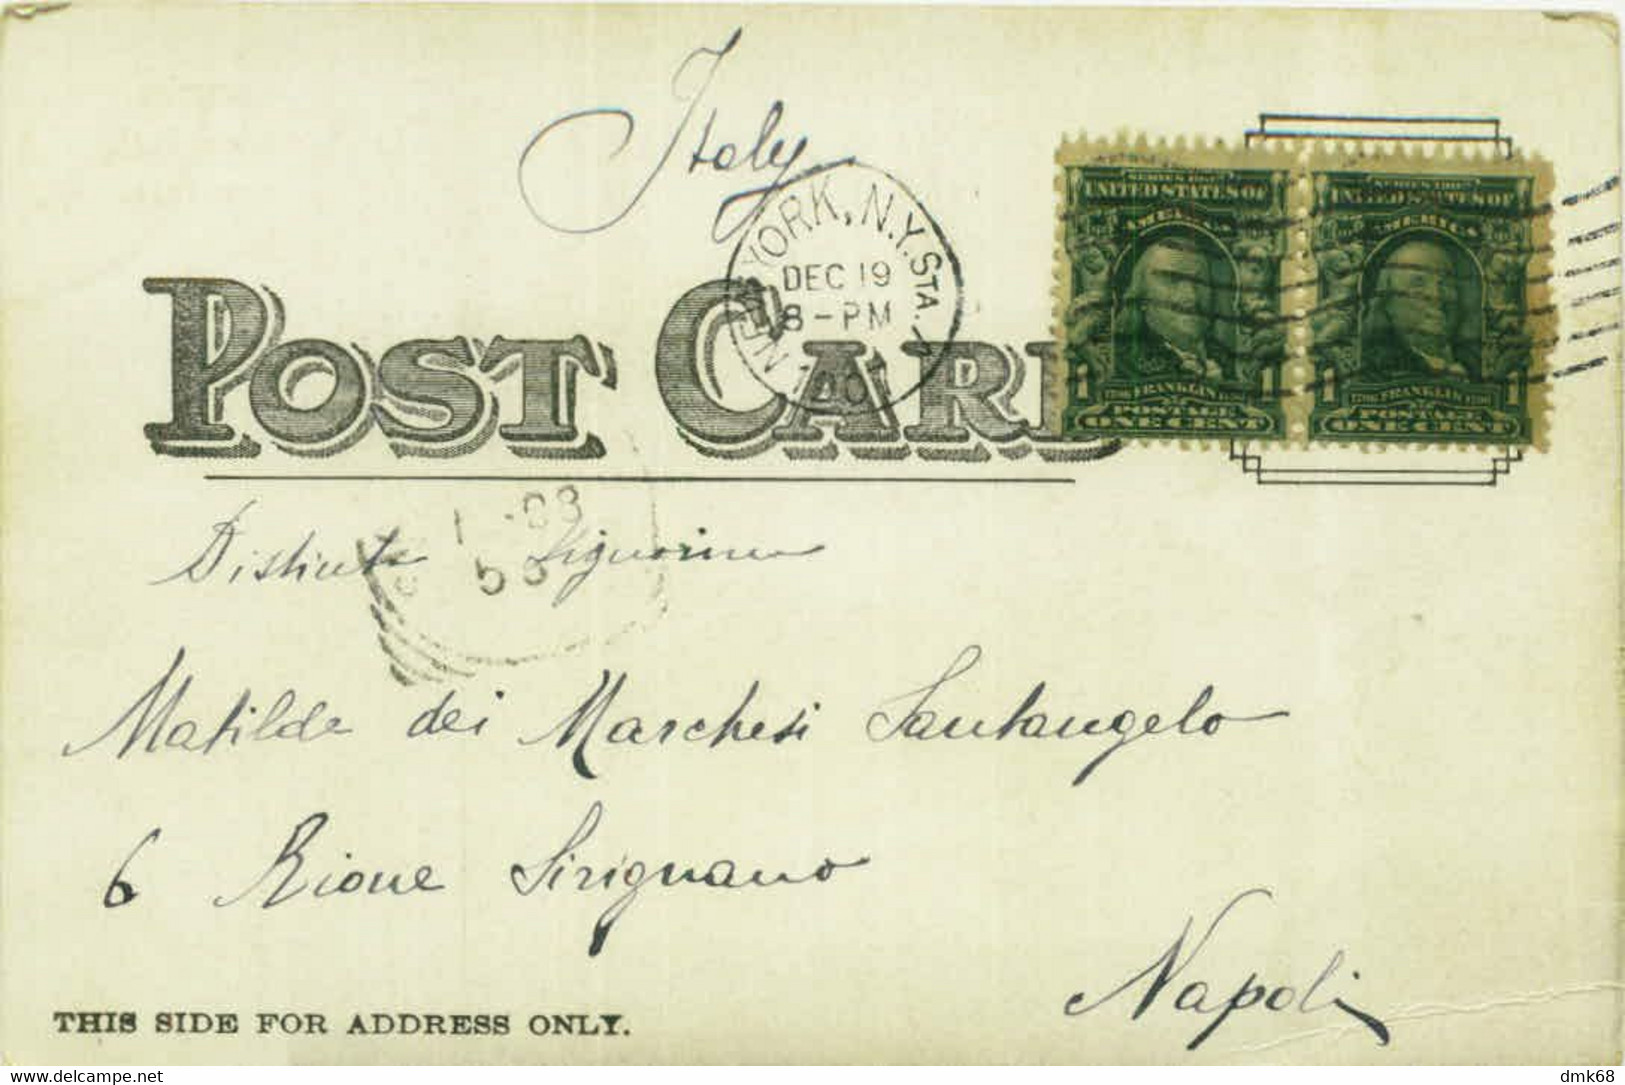 Italy
NEW YORK, N.Y. STA.
DEC 19
8-PM
SERIES 1902
UNITED STATES OF
AMERICA
1 FRANKLIN 1
POSTAGE
ONE CENT
SERIES 1902
UNITED STATES OF
AMERICA
1 FRANKLIN 1
POSTAGE
ONE CENT
POST CARD
Distinta Signorina
Matilde dei Marchesi Santangelo
6 Rione Sirignano
Napoli
THIS SIDE FOR ADDRESS ONLY.
delcampe.net
dmk68